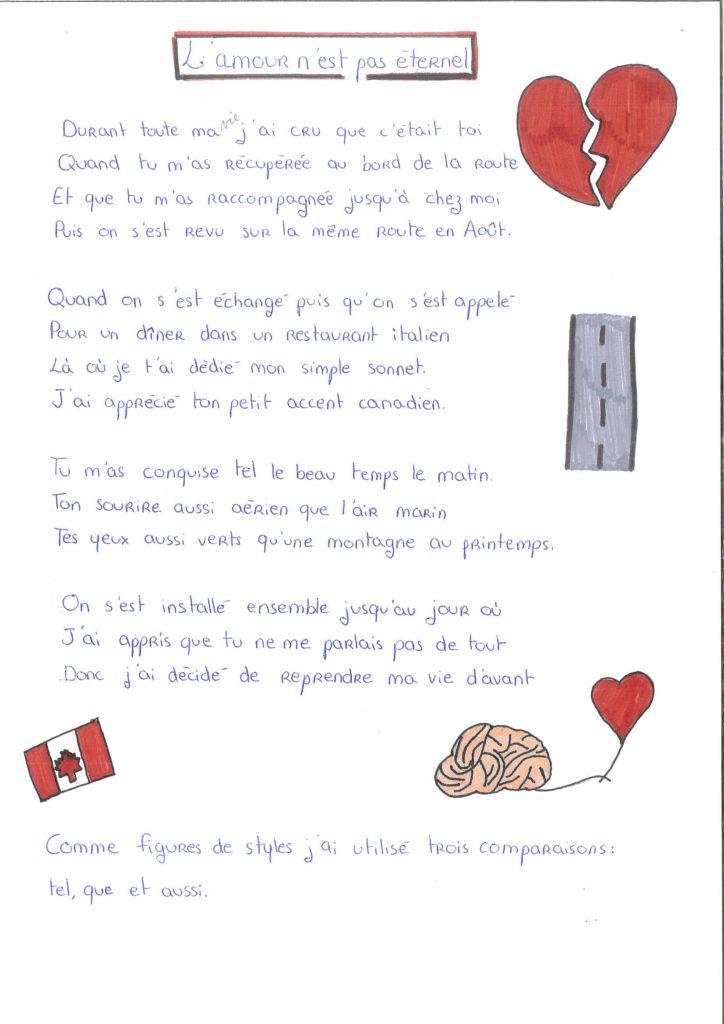 L'amour n'est pas éternel
Durant toute ma vie j'ai cru que c'était toi
Quand tu m'as récupérée au bord de la route
Et que tu m'as raccompagnée jusqu'à chez moi
Puis on s'est revu sur la même route en Août.
Quand on s'est échangé puis qu'on s'est appelé
Pour un dîner dans un restaurant italien
Là où je t'ai dédié mon simple sonnet.
J'ai apprécié ton petit accent canadien.
Tu m'as conquise tel le beau temps le matin.
Ton sourire aussi aérien que l'air marin
Tes yeux aussi verts qu'une montagne au printemps.
On s'est installé ensemble jusqu'au jour où
J'ai appris que tu ne me parlais pas de tout
Donc j'ai décidé de reprendre ma vie d'avant
Comme figures de styles j'ai utilisé trois comparaisons:
tel, que et aussi.